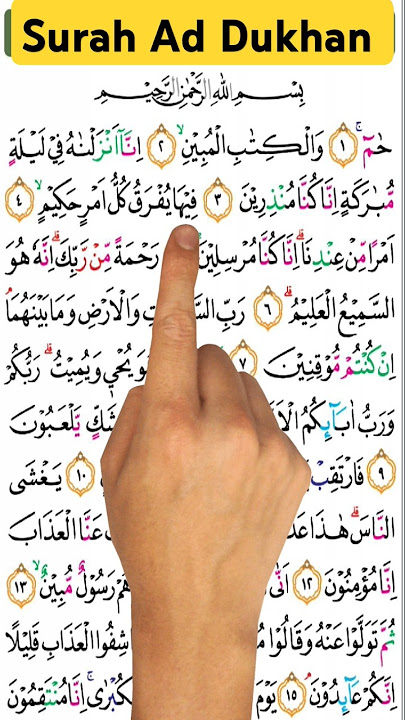 Surah Ad Dukhan
بِسْمِ اللهِ الرَّحْمٰنِ الرَّحِيْمِ
حٰمٓ ۚ ١ وَالْكِتٰبِ الْمُبِيْنِ ۙ ٢ اِنَّآ اَنْزَلْنٰهُ فِيْ لَيْلَةٍ
مُّبٰرَكَةٍ اِنَّا كُنَّا مُنْذِرِيْنَ ٣ فِيْهَا يُفْرَقُ كُلُّ اَمْرٍ حَكِيْمٍ ۙ ٤
اَمْرًا مِّنْ عِنْدِنَا ۗ اِنَّا كُنَّا مُرْسِلِيْنَ رَحْمَةً مِّنْ رَّبِّكَ ۗ اِنَّهٗ هُوَ
السَّمِيْعُ الْعَلِيْمُ ۗ ٦ رَبِّ وَالْاَرْضِ وَمَا بَيْنَهُمَا
اِنْ كُنْتُمْ مُّوْقِنِيْنَ ٧ يُحْيٖ وَيُمِيْتُ ۗ رَبُّكُمْ
وَرَبُّ اٰبَآئِكُمُ شَكٍّ يَّلْعَبُوْنَ
٩ فَارْتَقِبْ ١٠ يَغْشَى
النَّاسَ ۗ هٰذَا عَنَّا الْعَذَابَ
اِنَّا مُؤْمِنُوْنَ ١٢ اَنّٰى رَسُوْلٌ مُّبِيْنٌ ۙ ١٣
ثُمَّ تَوَلَّوْا عَنْهُ وَقَالُوْا الْعَذَابِ قَلِيْلًا
اِنَّكُمْ عَآئِدُوْنَ ۘ ١٥ يَوْمَ الْكُبْرٰى ۚ اِنَّا مُنْتَقِمُوْنَ